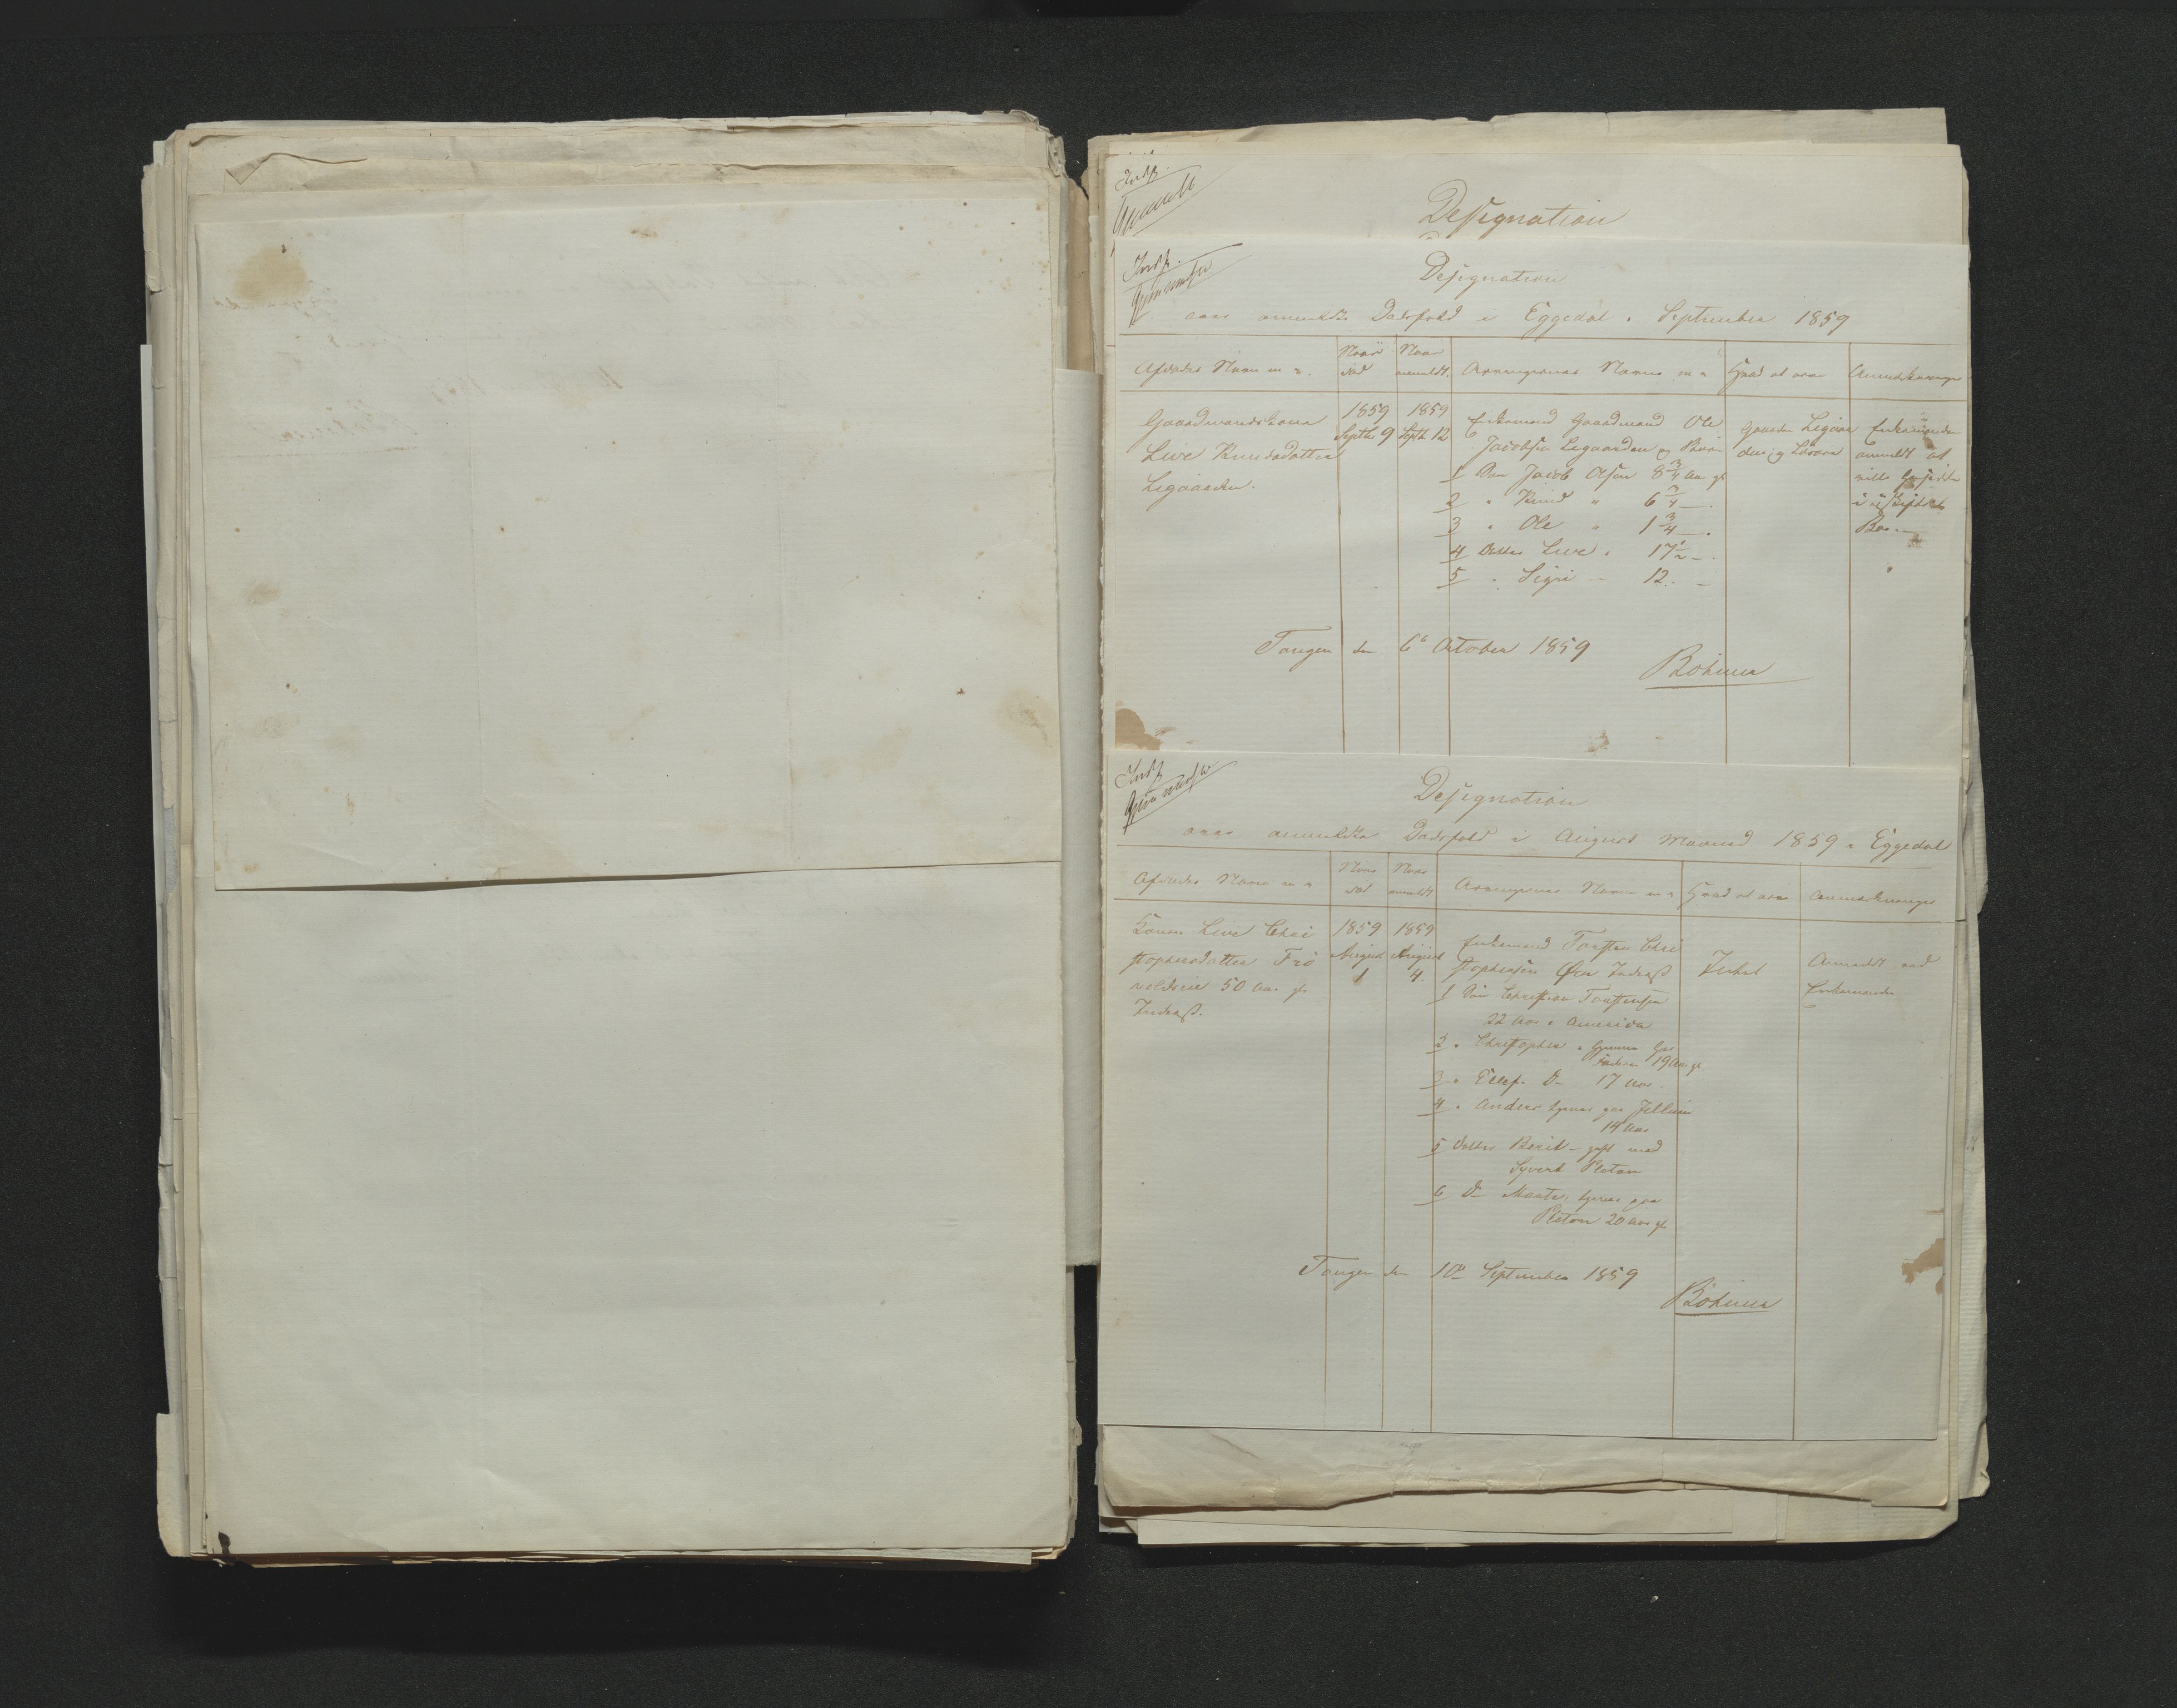 Designation
Designation
over anmeldte Dødsfald i Eggedal i September 1859
Afdødes Navn m v.
Naar død
Naar anmeldt.
Arvingernes Navne m v
Hvad at arve
Anmærkninger
Gaardmandskone
Live Knudsdatter
Ligaarden.
1859
Septbr 9
1859
Septb 12
Enkemand Gaardmand Ole
Jacobsen Ligaarden og Børn
1 Søn Jacob Olsen 8 3/4 Aar gl
2 " Knud " 6 3/4 — .
3 " Ole " 1 3/4 — .
4 Datter Live " 17 1/2 — .
5 " Sigri — 12. —
Gaarden Ligaar
den og Løsøre
Enkemanden
anmeldt at
ville hensidde
i uskiftet
Boe. —
Tangen den 6te October 1859
Böhmer
Designation
over anmeldte Dødsfald i August Maaned 1859 i Eggedal
Afdødes Navn m v
Naar død
Naar anmeldt
Arvingernes Navne m v
Hvad at arve
Anmærkninger
Konen Live Chri
stophersdatter Frö
50 Aar gl
Inderst.
1859
August
1
1859
August
4.
Enkemand Torsten Chri
stophersen Inderst
1 Søn Christian Torstensen
22 Aar i America
2 " Christopher "
19 Aar gl
3 " Ellef. D— 17 Aar.
4 " Anders tjener paa
14 Aar
5 Datter Berit — gift med
Syvert Pleton
6 D— tjener paa
Pleton 20 Aar gl
Intet
Anmeldt ved
Enkemanden
Tangen den 10de September 1859
Böhmer